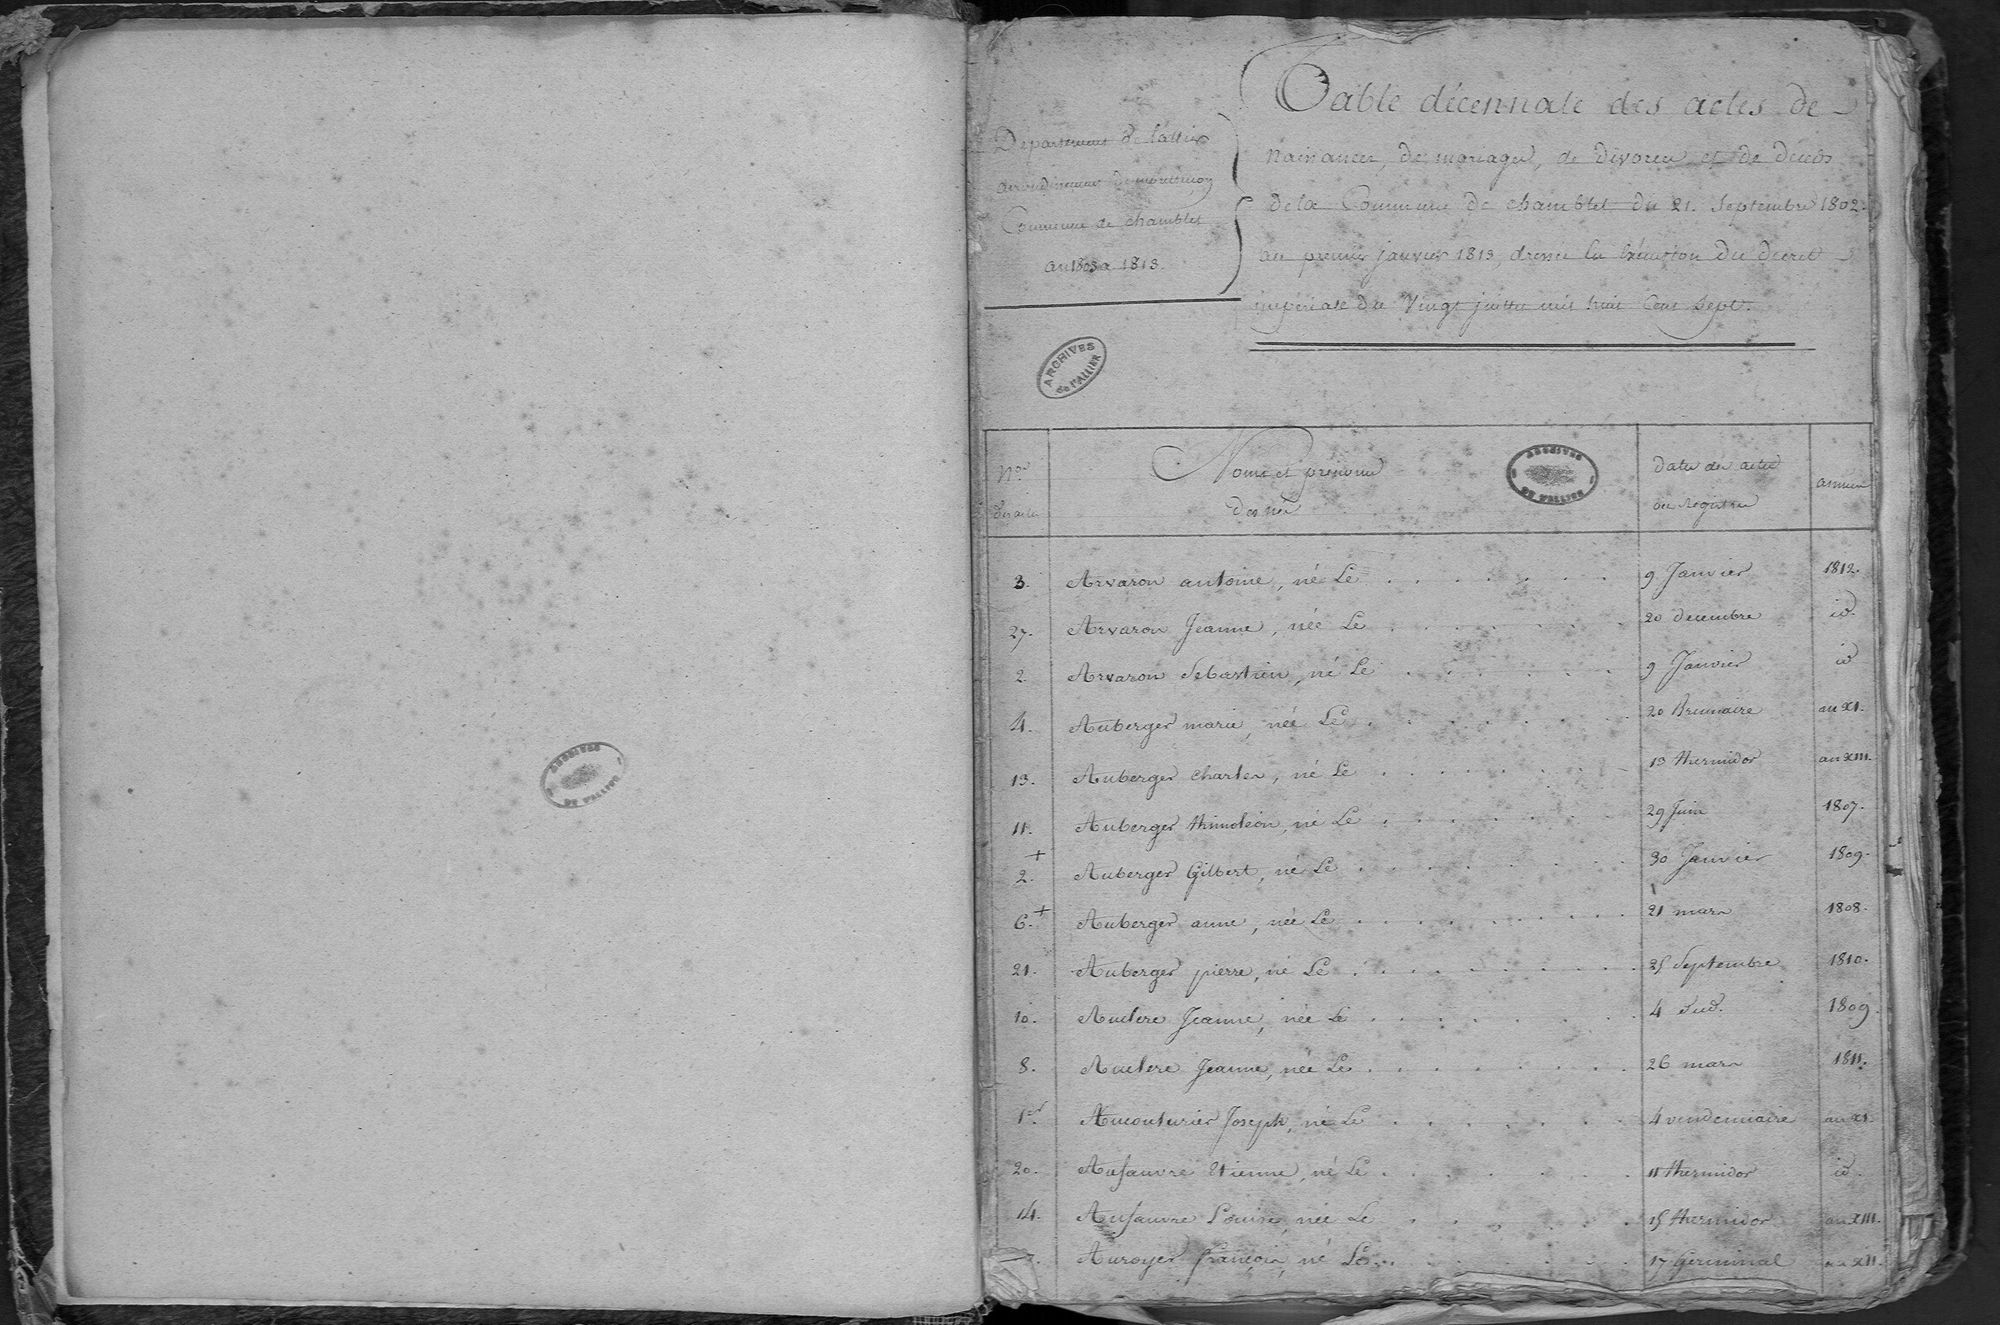 ARCHIVES DE L'ALLIER
Département de l'allier
arrondissement de montluçon
Commune de chamblet
an 1803 a 1813.
Table décennale des actes de
naissances, de mariages, de divorces et de décès
de la Commune de chamblet du 21. Septembre 1802.
au premier janvier 1813, dressée en Exécution du decret
impériale du Vingt juillet mil huit Cent Sept.
ARCHIVES de l'ALLIER
Nos des actes
Noms et prénoms des nés
ARCHIVES DE L'ALLIER
Dates des actes ou registres
années
3. Arvaron antoine, né Le 9 Janvier 1812.
27. Arvaron Jeanne, née Le 20 decembre id.
2. Arvaron Sebastien, né Le 9 Janvier id
4. Auberger marie, née Le 20 Brumaire an XI.
13. Auberger charles, né Le 13 thermidor an XIII.
11. Auberger thimoléon, né Le 29 Juin 1807.
+ 2. Auberger Gilbert, né Le 30 Janvier 1809.
6. + Auberger anne, née Le 21 mars 1808.
21. Auberger pierre, né Le 25 Septembre 1810.
10. Auclere Jeanne, née Le 4 1809.
8. Auclere Jeanne, née Le 26 mars 1811.
1er Aucouturier Joseph, né Le 4 vendemiaire an XI.
20. Aufauvre Etienne, né Le 11 thermidor id.
14. Aufauvre Louise, née Le 15 thermidor an XIII.
Auroyer françois, né Le 17 Germinal an XII.